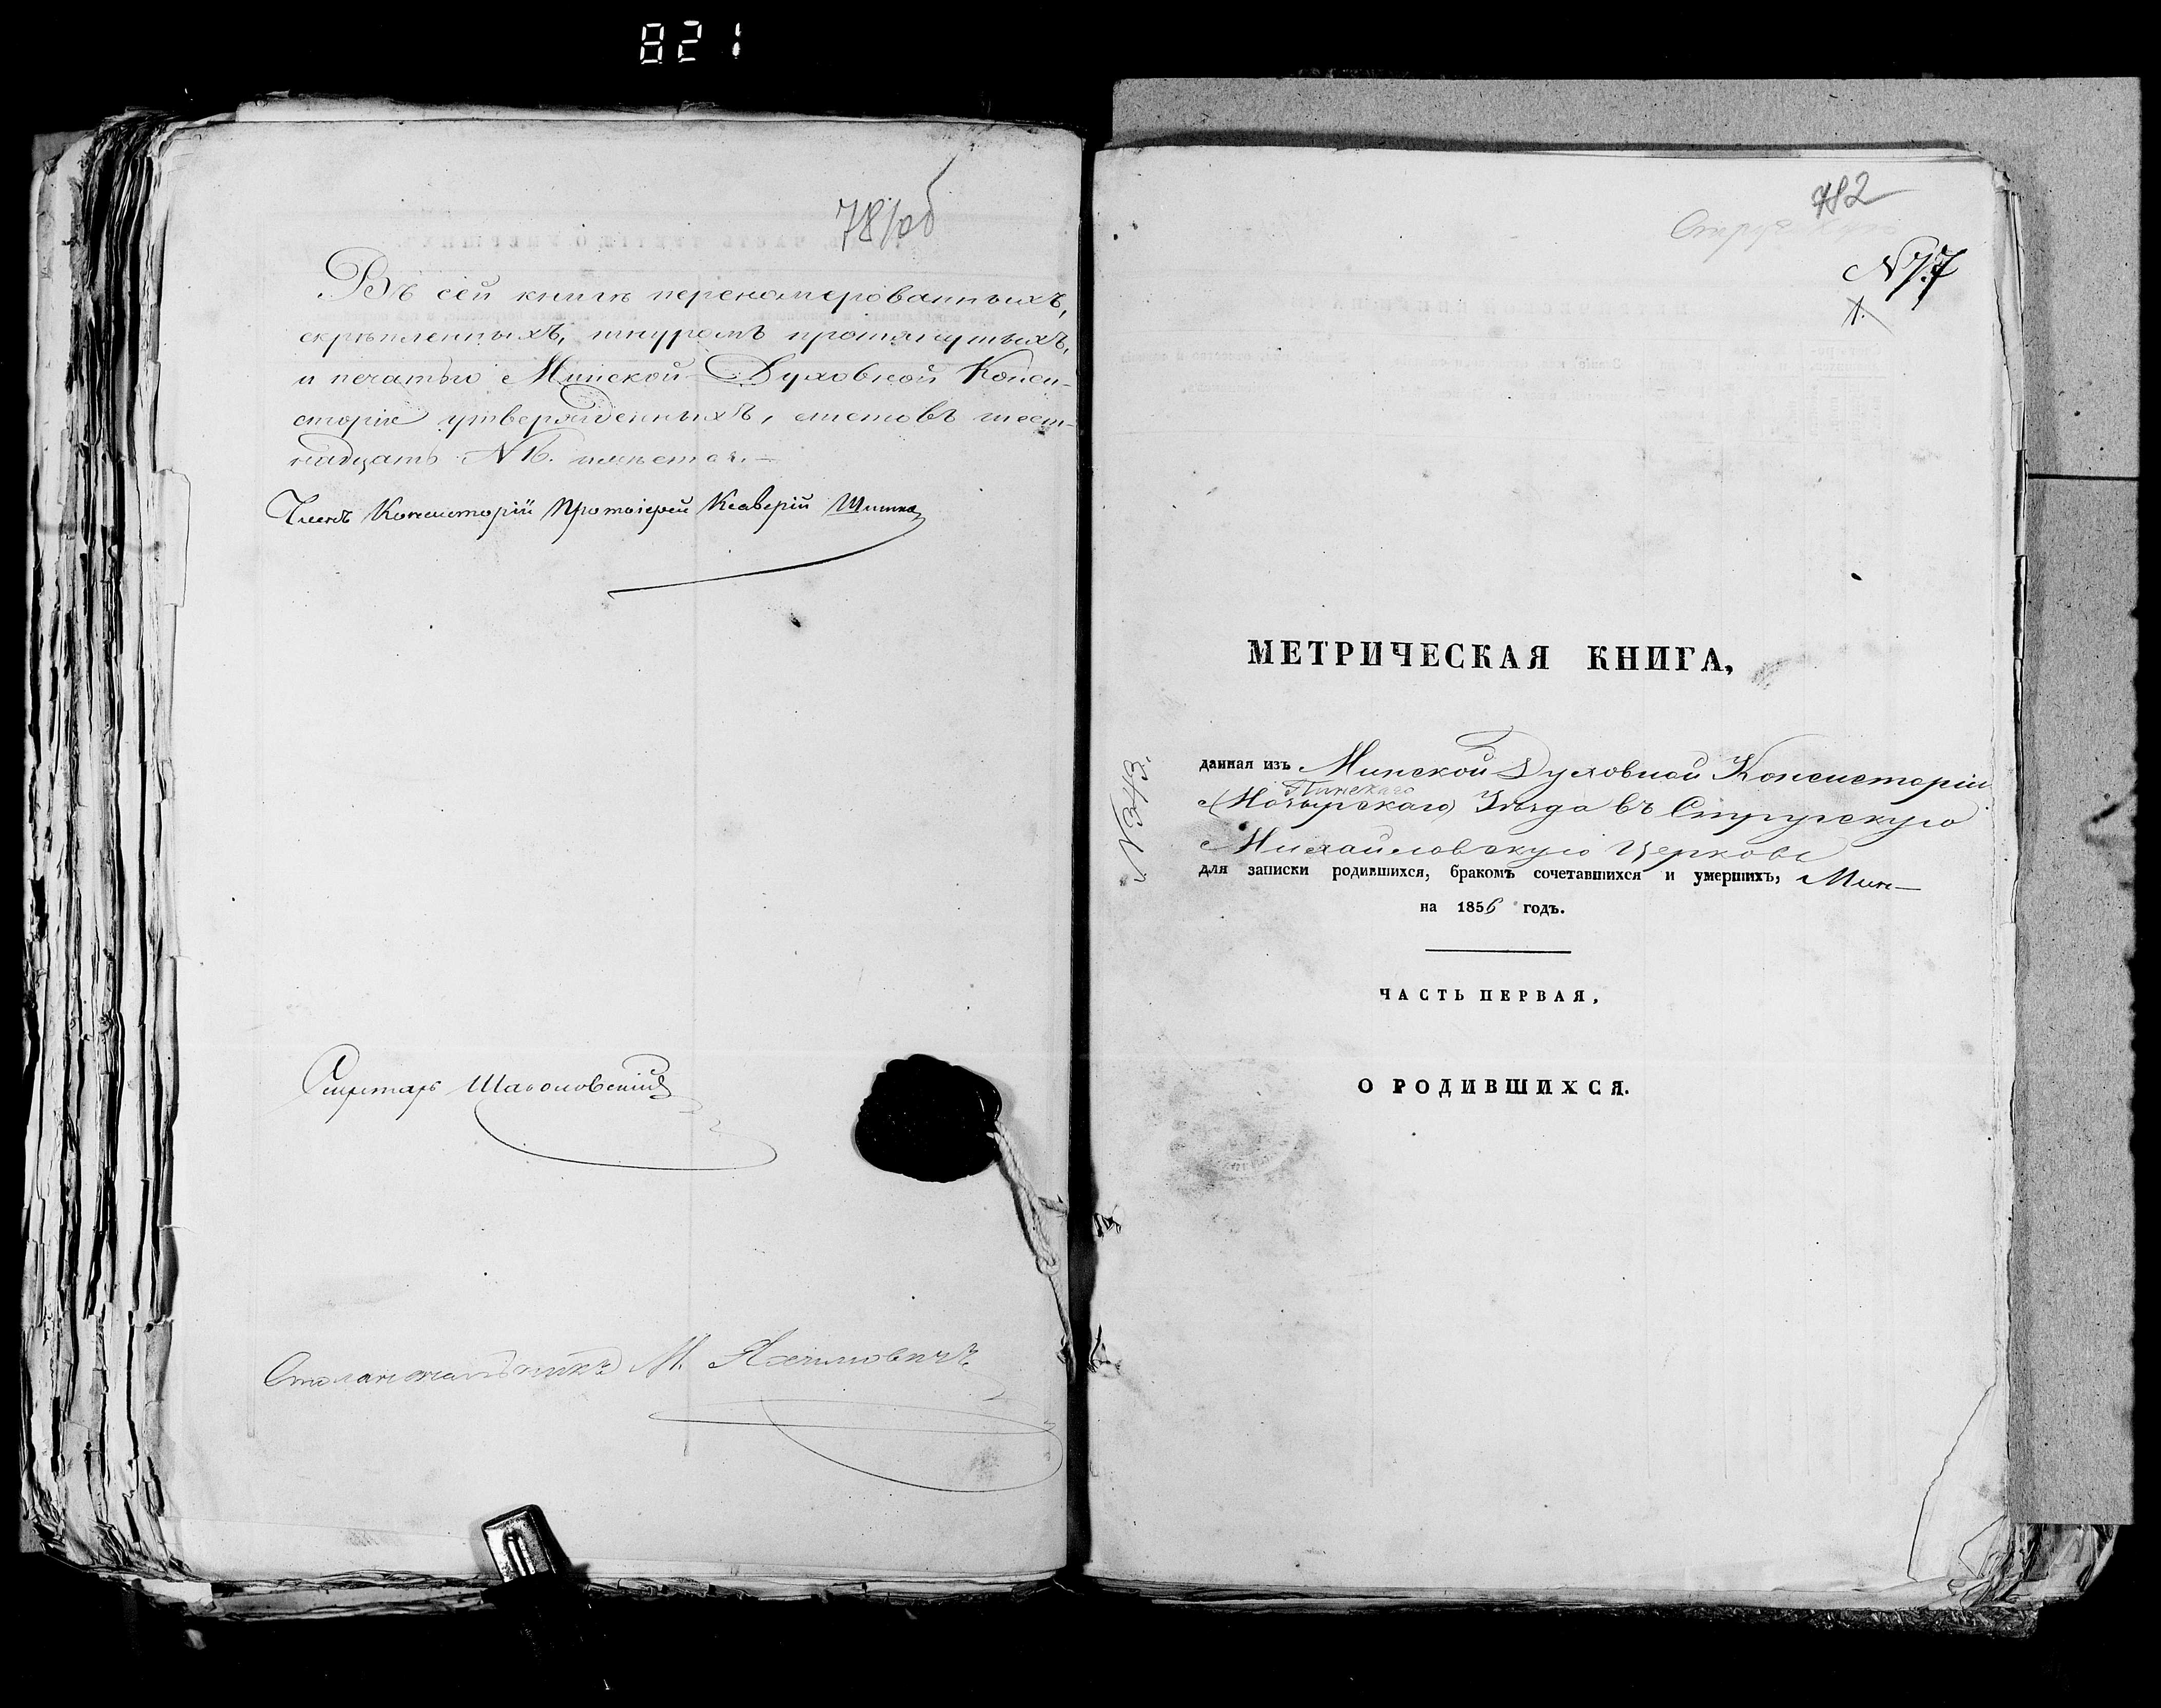 821
781об
Въ сей книгѣ переномерованныхъ,
скрѣпленныхъ, шнуромъ протянутыхъ,
и печатью Минской Духовной Конси-
сторіи утвержденныхъ, листовъ шест-
надцать №16. имѣется.—
Членъ Консисторіи Протоіерей Ксаверій
Секретарь
Столоначальникъ М.
782
№77
1.
МЕТРИЧЕСКАЯ КНИГА,
№343.
данная изъ Минской Духовной Консисторіи
Пинскаго
(Мозырскаго) Уѣзда въ Стружскую
Михайловскую Церковь
для записки родившихся, бракомъ сочетавшихся и умершихъ,
на 1856 годъ.
ЧАСТЬ ПЕРВАЯ,
О РОДИВШИХСЯ.